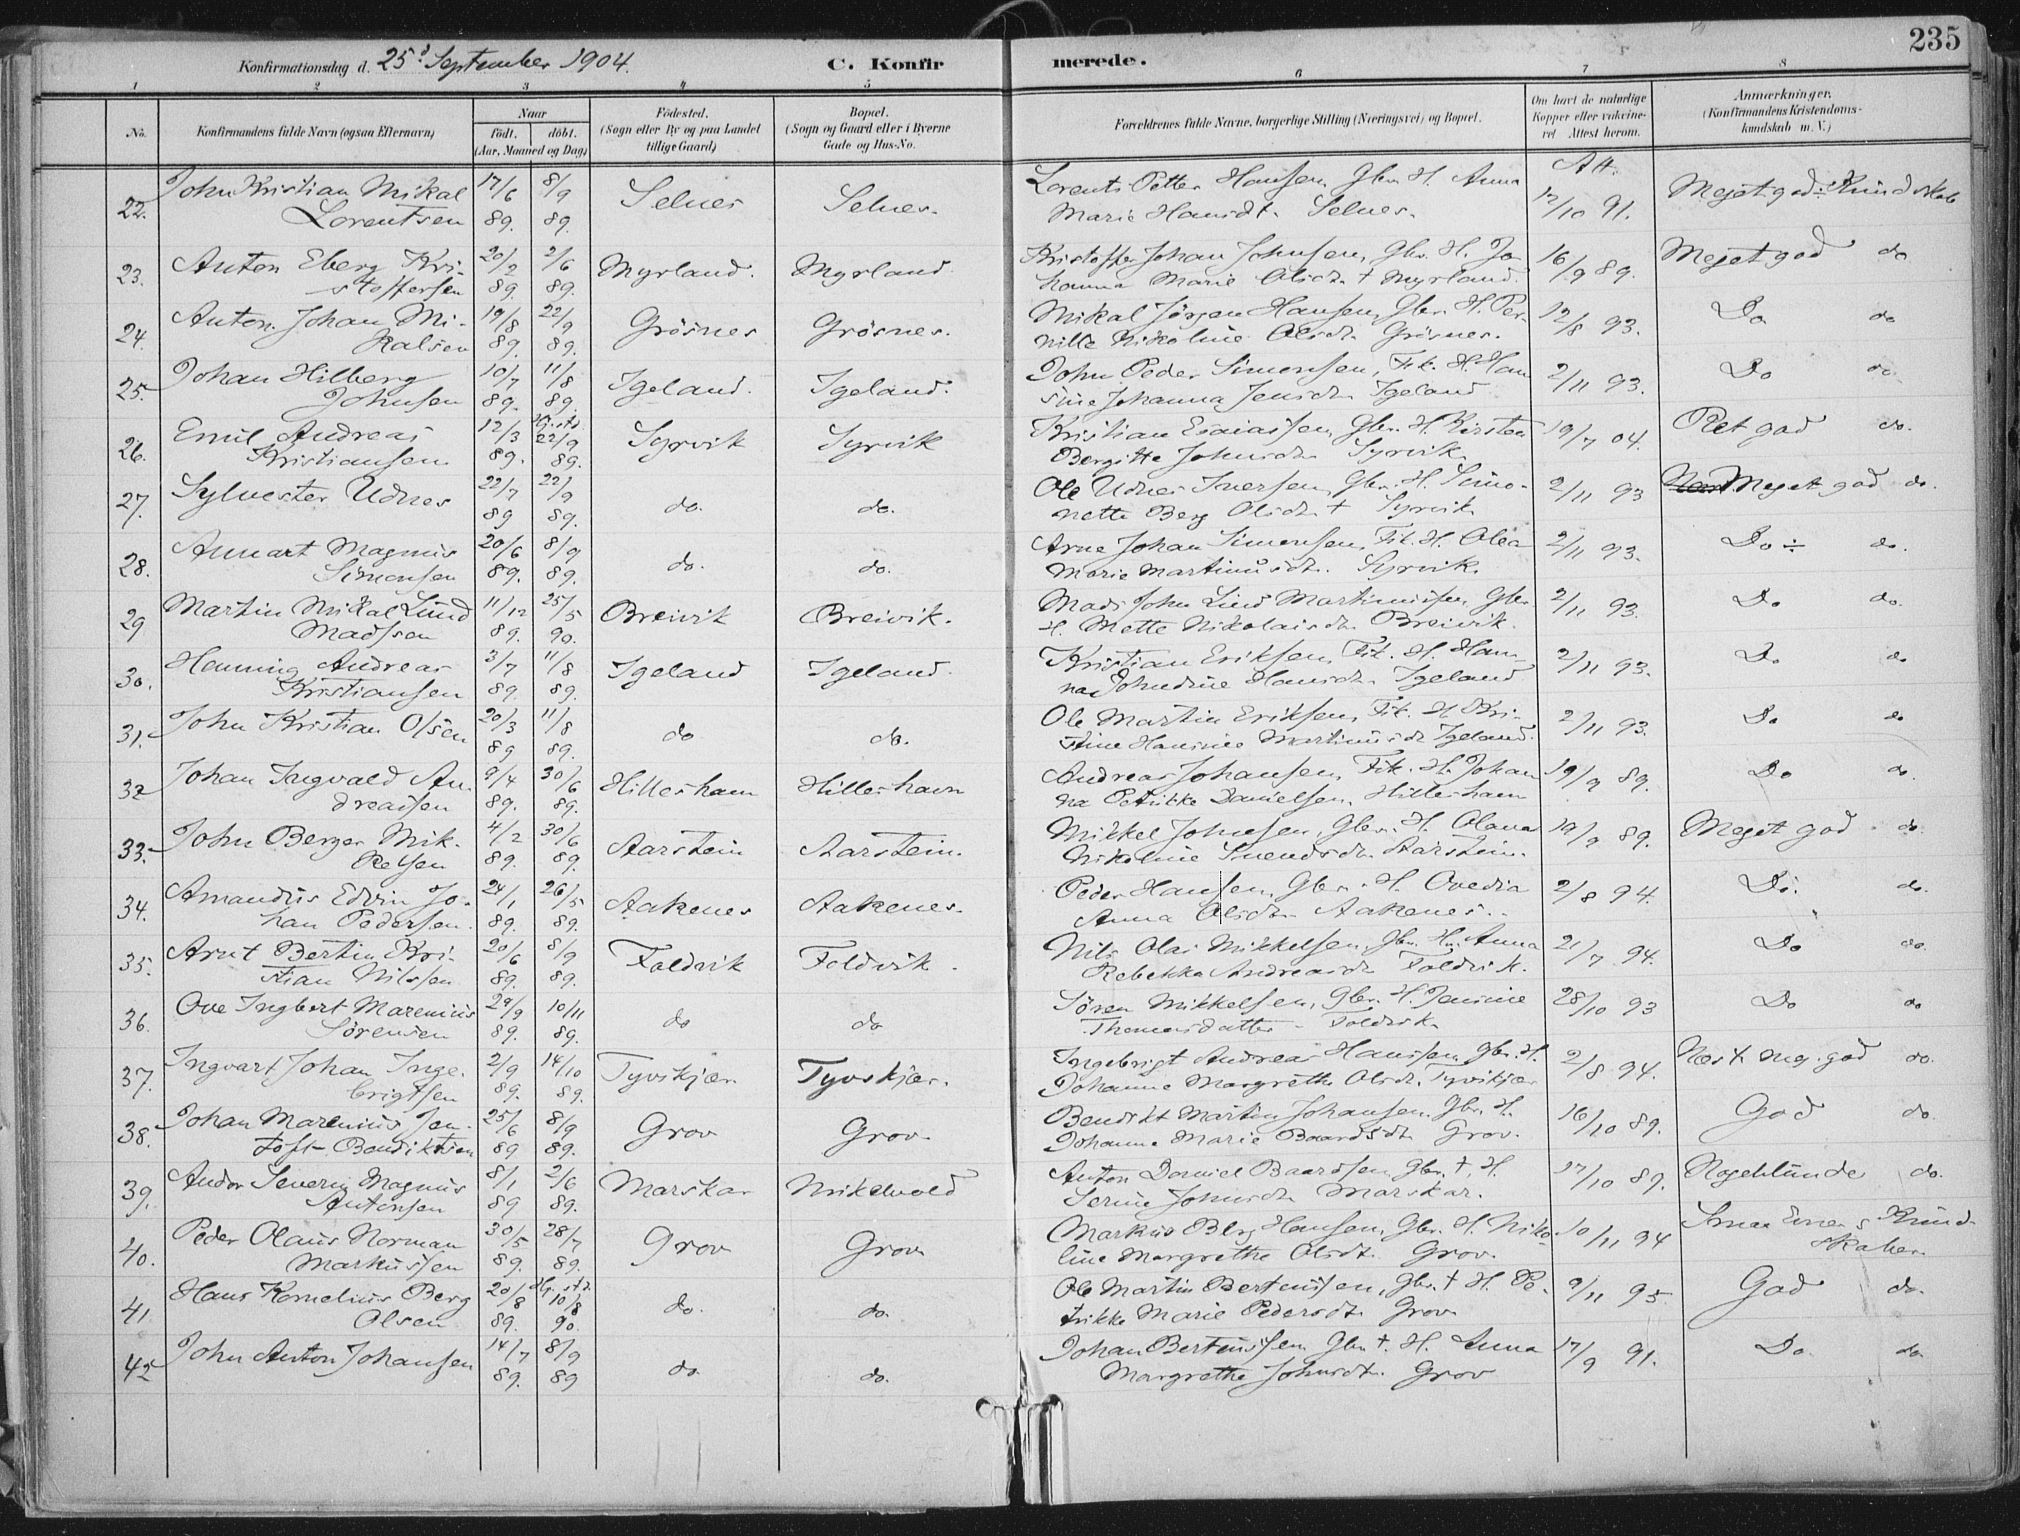 235
Konfirmationsdag d. 25d September 1904. C. Konfirmerede.
1 2 3 4 5 6 7 8
No. Konfirmandens fulde Navn (ogsaa Efternavn) Naar født. døbt. (Aar, Maaned og Dag) Fødested. (Sogn eller By og paa Landet tillige Gaard) Bopæl. (Sogn og Gaard eller i Byerne Gade og Hus-No. Forældrenes fulde Navne, borgerlige Stilling (Næringsvei) og Bopæl. Om havt de naturlige Kopper eller vakcineret Attest herom. Anmærkninger. (Konfirmandens Kristendomskundskab m. V.)
Att.
22. John Kristian Mikal 17/6 8/9 Selnes Selnes. Lorents Petter Hansen Gbr. H. Anna 12/10 91. Meget god Kundskab
Lorentsen 89. 89. Marie Hansdt. Selnes.
23. Anton Eberg Kri- 20/2 2/6 Myrland. Myrland Kristoffer Johan Johnsen, Gbr. H. Jo- 16/9 89. Meget god do
stoffersen 89. 89. hanna Marie Olsdt. + Myrland.
24. Anton Johan Mi- 19/8 22/9 Grøsnes Grøsnes. Mikal Jørgen Hansen, Gbr. H. Per- 12/8 93. Do do
kalsen 89. 89. nille Nikoline Olsdt. Grøsnes.
25. Johan Hilberg 10/7 11/8 Igeland. Igeland. John Peder Simonsen, Fik. H. Han 2/11 93. Do do
Johnsen 89. 89. sine Johanna Jensdt. Igeland
26. Emil Andreas 12/3 Hj. st. d. 22/9 Syrvik Syrvik Kristian Esaiassen, Gbr. H. Kirsten 19/7 04. Ret god do.
Kristiansen 89. 89. Bergitte Johnsdt. Syrvik
27. Sylvester Udnes 22/7 22/9 do. do. Ole Udnes Iversen, Gbr. H. Simo- 2/11 93 Meget god do.
89 89. nette Berg Olsdt + Syrvik
28. Annart Magnus 20/6 8/9 do. do. Arne Johan Simonsen, Fik. H. Olea 2/11 93. Do ÷ do.
Simonsen 89. 89. Marie Martinusdt. Syrvik.
29 Martin Mikal Lund 11/12 25/5 Breivik Breivik. Mads John Lund Martinussen, Gbr. 2/11 93. Do do.
Madsen 89. 90. H. Mette Nikolaisdt. Breivik.
30. Henning Andreas 3/7 11/8 Igeland Igeland. Kristian Eriksen, Fik. H. Han- 2/11 93. Do do
Kristiansen 89. 89. na Johndine Hansdt. Igeland
31. John Kristian Olsen 20/3 11/8 do do. Ole Martin Eriksen, Fik. H Kri- 2/11 93. Do do
89 89. stine Hansine Martinusdt Igeland.
32 Johan Ingvald An- 9/4 30/6 Hilleshavn Hilleshavn Andreas Johansen, Fik. H. Johan 19/9 89. Do do.
dreassen 89. 89. na Petrikke Danielsen. Hilleshavn
33. John Berger Mik- 4/2 30/6 Aarstein Aarstein. Mikkel Johnsen, Gbr. H. Olava 19/9 89. Meget god do.
kelsen 89. 89. Nikoline Svendsdt. Aarstein.
34. Amandus Edvin Jo- 24/1 26/5 Aakenes Aakenes. Peder Hansen, Gbr. H. Ovedia 2/8 94. Do. do.
han Pedersen. 89. 89. Anna Olsdt. Aakenes.
35. Arnt Bertin Kri- 20/6 8/9 Foldvik Foldvik. Nils Olai Mikkelsen, Gbr. H. Anna 21/7 94. Do do.
stian Nilssen 89. 89. Rebekka Andreasdt. Foldvik.
36. Ove Ingbert Marenius 29/9 10/11 do do Søren Mikkelsen, Gbr. H. Jensine 28/10 93 Do do
Sørensen 89. 89. Thomasdatter - Foldvik.
37. Ingvart Johan Inge- 2/9 14/10 Tyvskjær Tyvskjær. Ingebrigt Andreas Hanssen, Gbr. H. 2/8 94. Næst meg. god do.
brigtsen 89. 89. Johanne Margrethe Olsdt. Tyvskjær
38. Johan Marenius Jen- 25/6 8/9 Grov Grov. Bendikt Martin Johansen, Gbr. H. 16/10 89. God do.
toft Bendiktsen 89 89. Johanne Marie Baardsdt. Grov.
39. Andor Severin Magnus 8/1 2/6 Marskar Mikelvold Anton Daniel Baardsen, Gbr. +, H. 17/10 89. Nogenlunde do.
Antonsen 89 89. Serine Johnsdt. Marskar.
40. Peder Olaus Norman 30/5 28/7 Grov Grov Markus Berg Hansen, Gbr. H. Niko- 10/11 94 Smaa Evner & Kund-
Markussen 89. 89. line Margrethe Olsdt. Grov. skaber
41. Hans Kornelius Berg 20/8 Hj. st. d. 10/8 do. do. Ole Martin Berteussen, Gbr. + H. Pe- 9/11 95. God do.
Olsen 89. 90. trikke Marie Pedersdt. Grov
42 John Anton Johansen 14/7 8/9 do do. Johan Berteussen Gbr. +. H. Anna 17/9 91. Do. do
89. 89 Margrethe Johnsdt. Grov